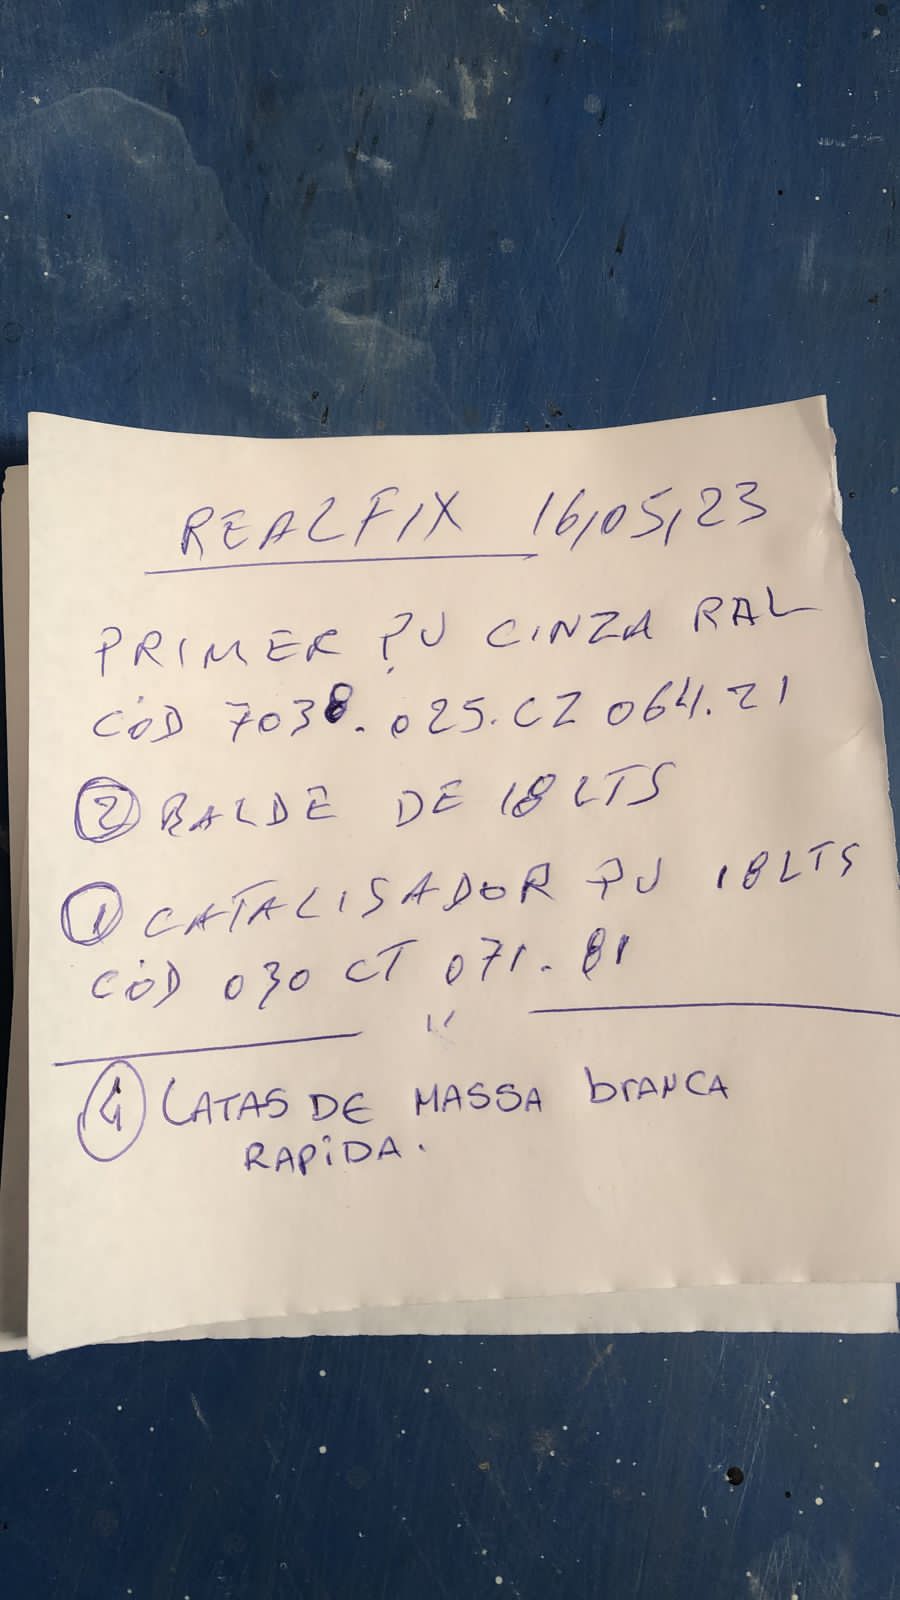 REALFIX 16,05,23
PRIMER PU CINZA RAL
CÓD 7038.025.CZ 064.21
2 BALDE DE 18 LTS
1 CATALISADOR PU 18LTS
CÓD 030 CT 071.81
"
4 LATAS DE MASSA brANCA
RAPIDA.